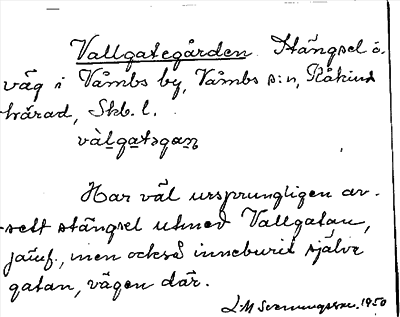 Vallgategården Stängsel ö.
väg i Våmbs by, Våmbs s:n, Kåkinds
härad, Skb. l.
välgatəgan
Har väl ursprungligen av-
sett stängsel utmed Vallgatan,
jämf., men också inneburit själva
gatan, vägen där.
J M Svenningsson. 1950